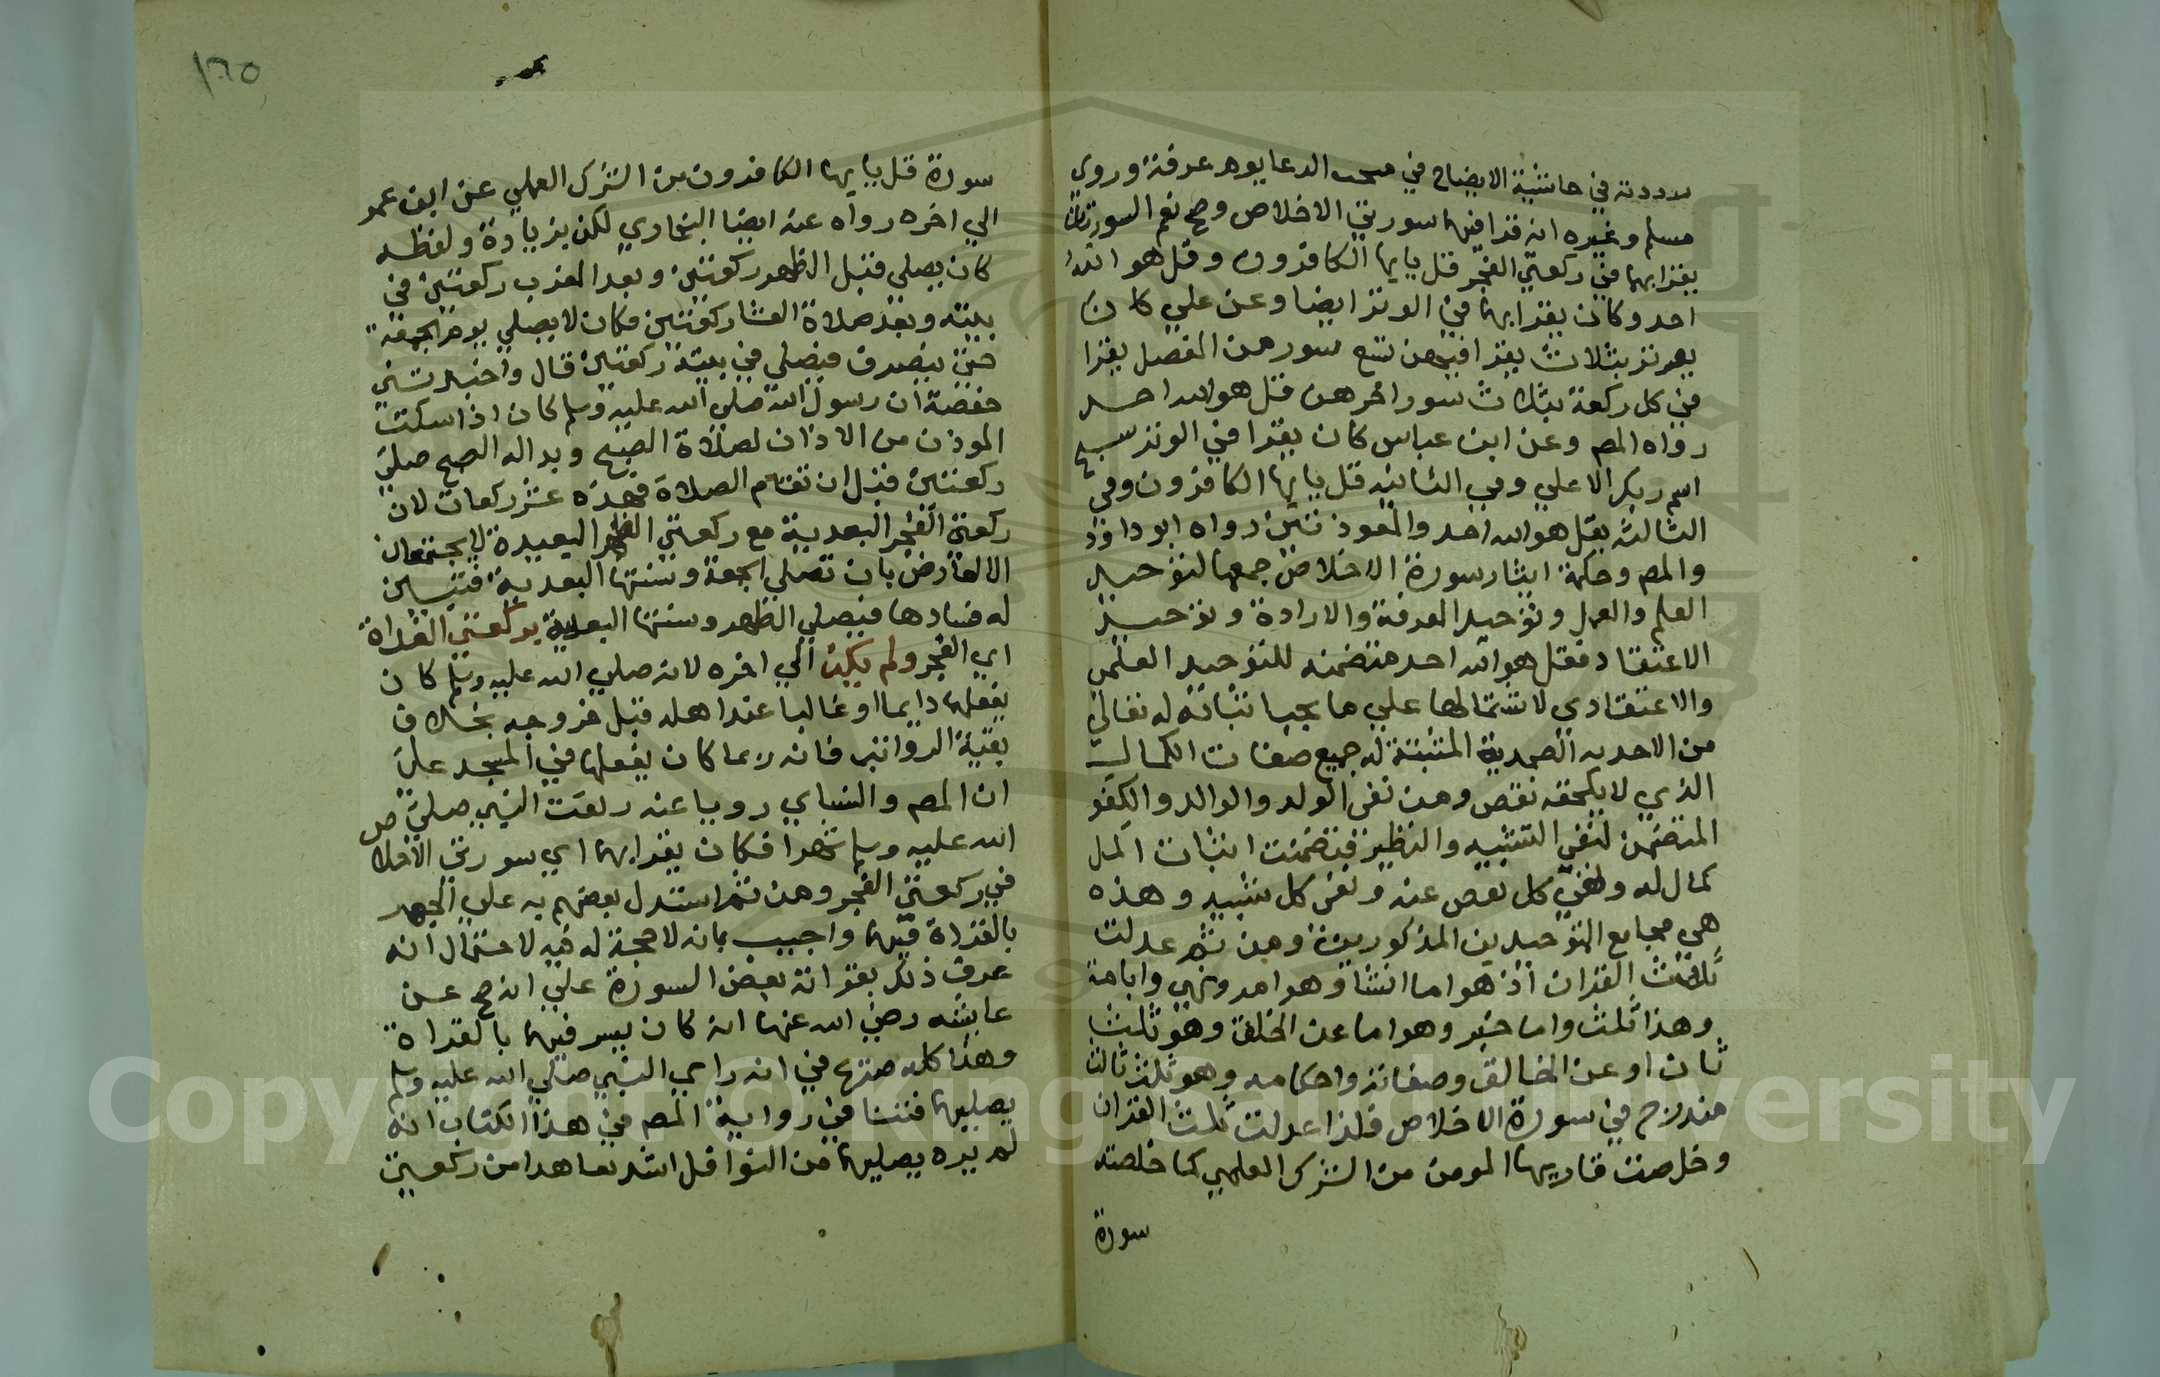 في حاشية الايضاح في مبحث الدعا يوم عرفة وروي
مسلم وغيره انه قرا فيهما سورتي الاخلاص وصح نعم السورتان
يقرا بهما في ركعتي الفجر قل يايها الكافرون وقل هو الله
احد وكان يقرا بهما في الوتر ايضا وعن علي كان
يوتر بثلاث يقرا فيهن تسع سور من المفصل يقرا
في كل ركعة بثلاث سور اخرهن قل هو الله احد
رواه المص وعن ابن عباس كان يقرا في الوتر سبح
اسم ربك الاعلي وفي الثانيه قل يايها الكافرون وفي
الثالثه بقل هو الله احد والمعوذتين رواه ابو داود
والمص وحكمة ايثار سورة الاخلاص جمعها لتوحيد
العلم والعمل وتوحيد المعرفة والارادة وتوحيد
الاعتقاد فقل هو الله احد متضمنه للتوحيد العلمي
والاعتقادي لاشتمالها علي ما يجب اثباته له تعالي
من الاحديه الصمدية المثبتة له جميع صفات الكمال
الذي لا يلحقه نقص ومن نفي الولد والوالد والكفو
المتضمن لنفي التشبيه والنظير فتضمنت اثبات كل
كمال له ونفي كل نقص عنه ونفي كل تشبيه وهذه
هي مجامع التوحيدين المذكورين ومن ثم عدلت
ثلث القران اذ هو اما انشا وهو امر ونهي واباحة
وهذا ثلث واما خبر وهو اما عن الخلق وهو ثلث
ثان او عن الخالق وصفاته واحكامه وهو ثلث ثالث
مندرج في سورة الاخلاص فلذا عدلت ثلث القران
وخلصت قاريها المومن من الشرك العلمي كما خلصته
سورة
١٦٥
سورة قل يايها الكافرون من الشرك العملي عن ابن عمر
الي اخره رواه عنه ايضا البخاري لكن بزيادة ولفظه
كان يصلي قبل الظهر ركعتين وبعد المغرب ركعتين في
بيته وبعد صلاة العشا ركعتين وكان لا يصلي يوم الجمعة
حتي ينصرف فيصلي في بيته ركعتين قال واخبرتني
حفصة ان رسول الله صلي الله عليه وسلم كان اذا سكت
الموذن من الاذان لصلاة الصبح وبدا له الصبح صلي
ركعتين قبل ان تقام الصلاة فهذه عشر ركعات لان
ركعتي الفجر البعدية مع ركعتي الظهر البعيدة لا يجتمعان
الا لعارض بان تصلي الجمعة وسنتها البعدية فتبين
له فسادها فيصلي الظهر وسنتها البعدية بركعتي الغداة
اي الفجر ولم يكن الي اخره لانه صلي الله عليه وسلم كان
يفعلها دايما او غالبا عند اهله قبل خروجه بخلاف
بقية الرواتب فانه ربما كان يفعلها في المسجد علي
ان المص والنساي رويا عنه رمقت النبي صلي
الله عليه وسلم شهرا فكان يقرا بهما اي سورتي الاخلاص
في ركعتي الفجر ومن ثم استدل بعضهم به علي الجهر
بالقراة فيهما واجيب بانه لا حجة له فيه لاحتمال انه
عرف ذلك بقراته بعض السورة علي انه صح عن
عايشه رضي الله عنها انه كان يسر فيهما بالقراة
وهذا كله صريح في انه راي النبي صلي الله عليه وسلم
يصليهما فننا في رواية المص في هذا الكتاب انه
لم يره يصليهما من النوافل اشد تعاهدا من ركعتي